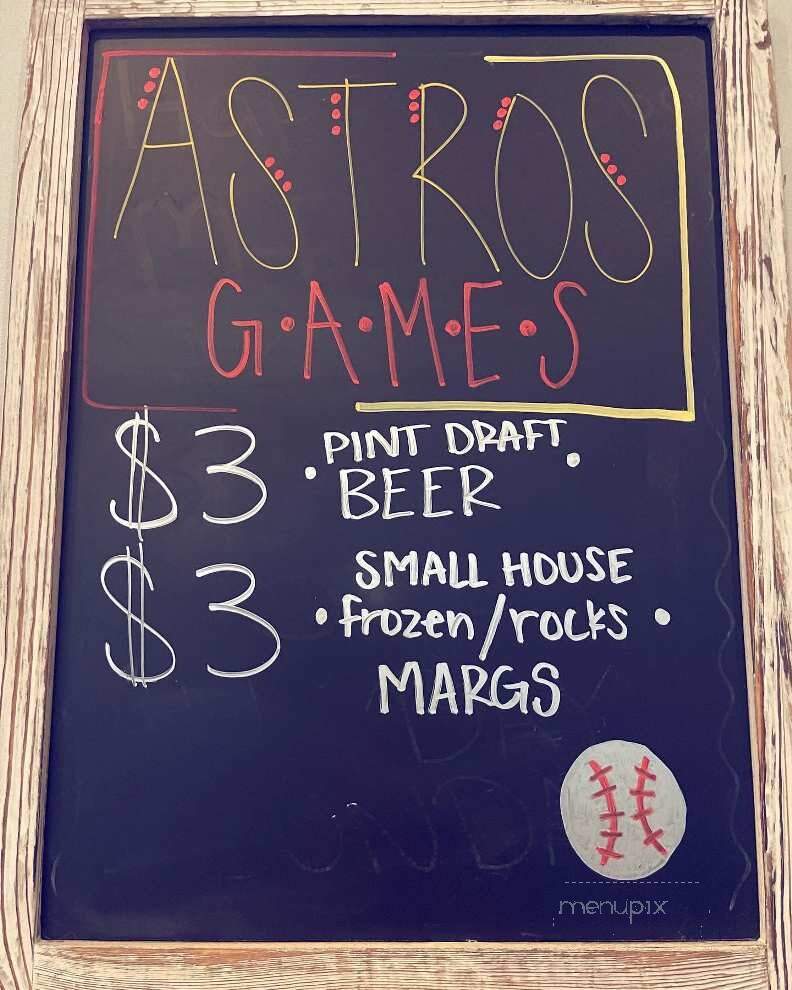 ASTROS
G•A•M•E•S
$3 • PINT DRAFT •
BEER
$3 SMALL HOUSE
• frozen/rocks •
MARGS
menupix